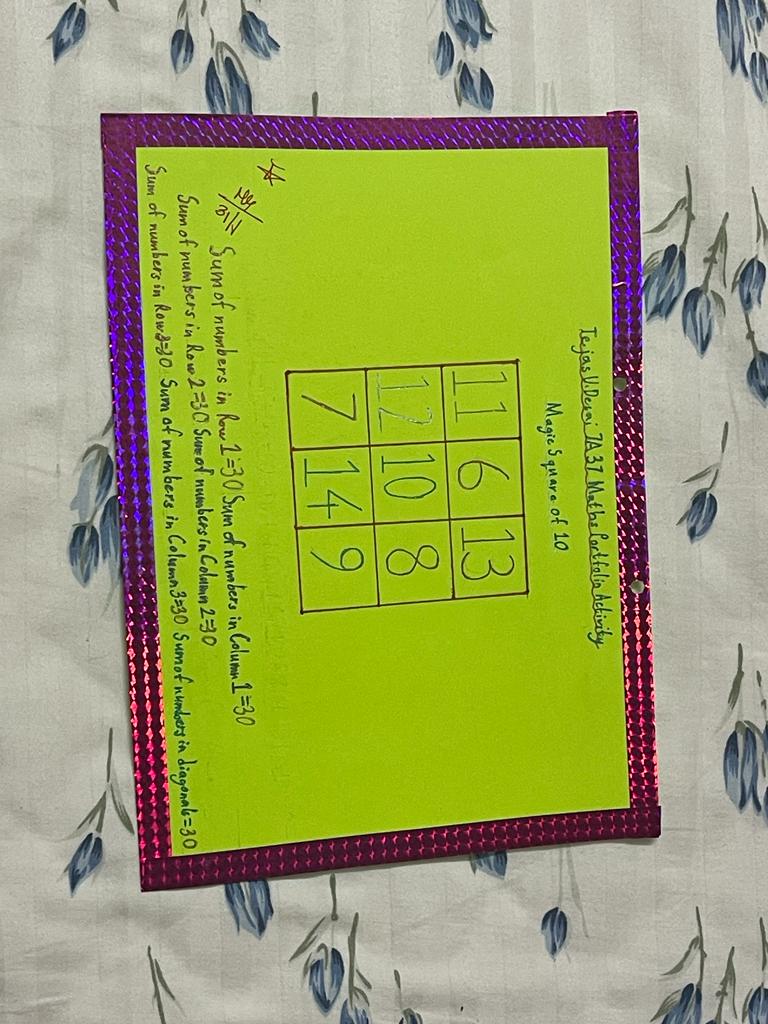 Tejas V. Desai 7A 37 Maths Portfolio Activity
Magic Square of 10
11 6 13
12 10 8
7 14 9
Sum of numbers in Row 1=30 Sum of numbers in Column 1=30
Sum of numbers in Row 2=30 Sum of numbers in Column 2=30
Sum of numbers in Row 3=30 Sum of numbers in Column 3=30 Sum of numbers in diagonals=30